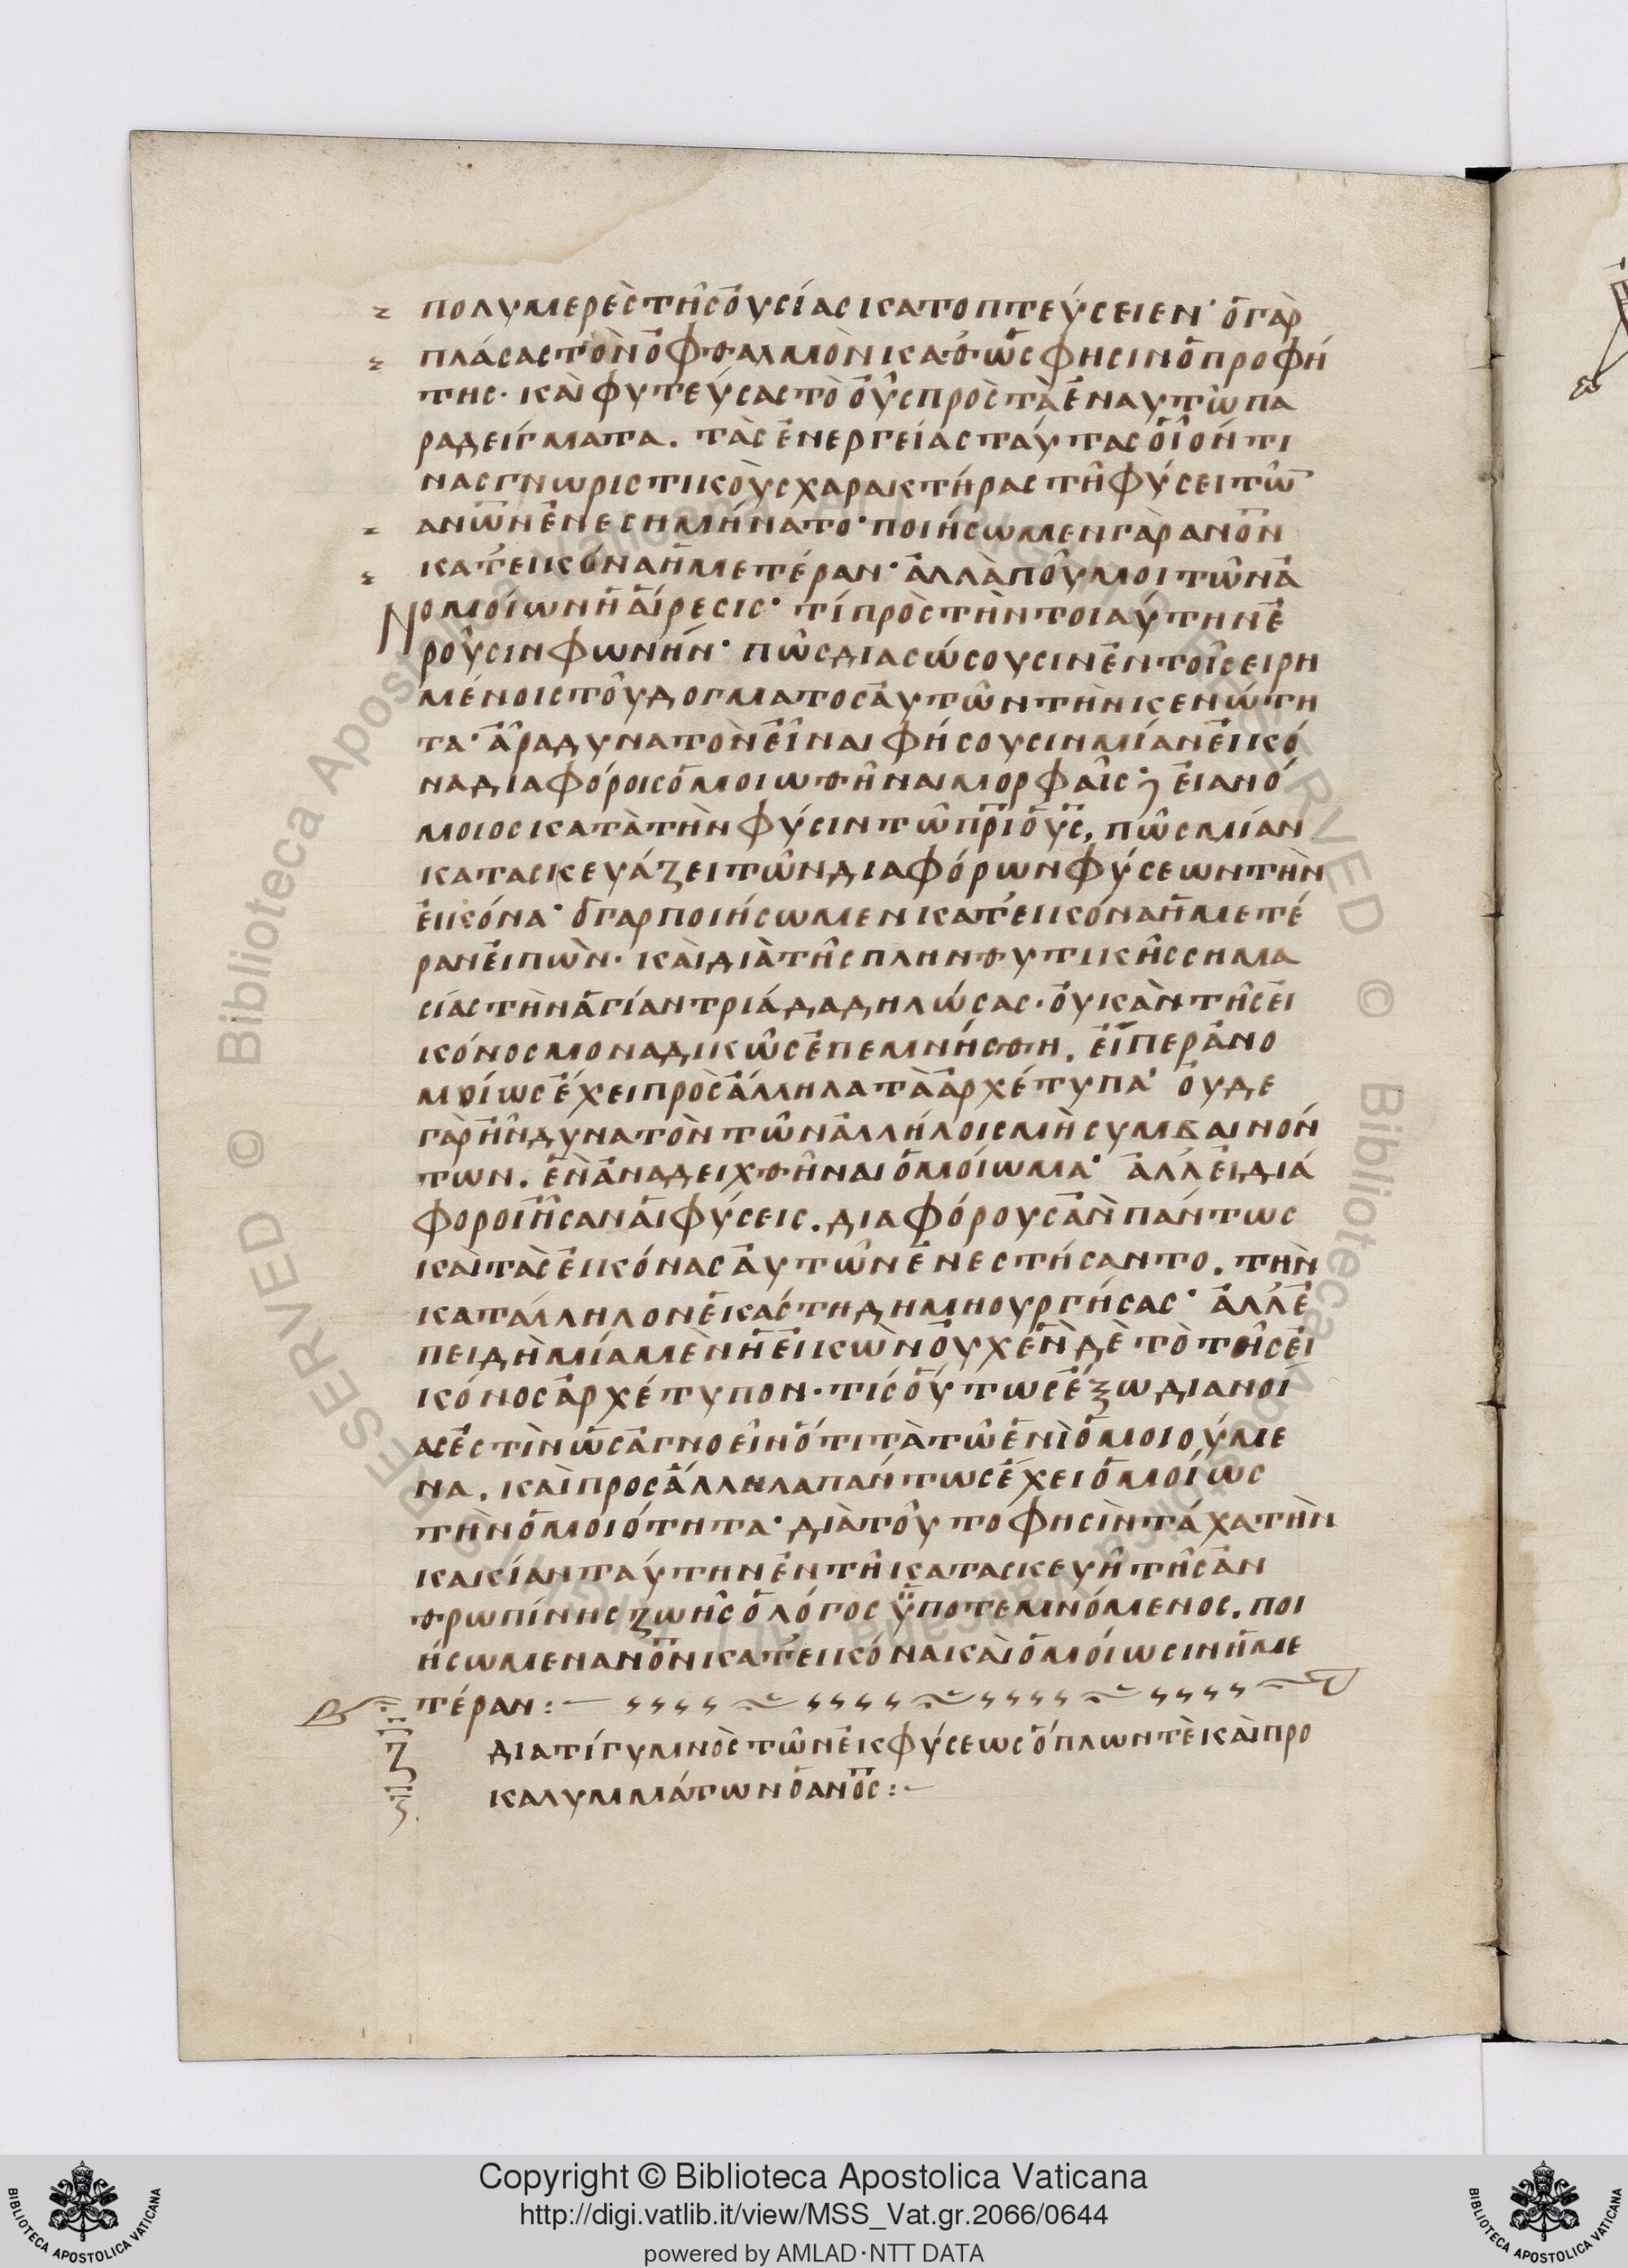 πολυμερὲς τῆς οὐσίας κατοπτεύσειεν· ὁ γὰρ
πλάσας τὸν ὀφθαλμὸν καθώς φησιν ὁ προφή
της· καὶ φυτεύσας τὸ οὖς πρὸς τὰ ἐν αυτῶ πα
ραδείγματα. τὰς ἐνεργείας ταύτας οἷόν τι
νας γνωριστικοὺς χαρακτήρας τῆ φύσει τῶ̅
ανω̅ν ἐνεσημήνατο· ποιήσωμεν γὰρ ανο̅ν
κατ' εικόνα ἡμετέραν· ἀλλὰ ποῦ μοι τῶν ἀ
Νομοίων ἡ αἵρεσις· τί πρὸς τὴν τοιαύτην ἐ
ροῦσιν φωνήν· πῶς διασώσουσιν ἐν τοῖς ειρη
μένοις τοῦ δογματος ἀυτῶν τὴν κενώτη
τα· ἆρα δυνατὸν εἶναι φήσουσιν μίαν εἰκό
να διαφόροις ὁμοιωθῆναι μορφαῖς; εἰ ανό
μοιος κατὰ τὴν φύσιν τῶ πρ̅ι ὁ υ̅ς, πῶς μίαν
κατασκευάζει τῶν διαφόρων φύσεων τὴν
ἐικόνα· ὁ γαρ ποιήσωμεν κατ' εικόνα ἡμετέ
ραν εἰπὼν· καὶ διὰ τῆς πληνθυτικῆς σημα
σίας τὴν ἁγίαν τριάδα δηλώσας· οὐκ ὰν τῆς εἰ
κόνος μοναδικῶς ἐπεμνήσθη. εἴπερ ἀνο
μοίως ἔχει πρὸς ἄλληλα τὰ ἀρχέτυπα· οὐδε
γὰρ ἦν δυνατὸν τῶν ἀλλήλοις μὴ συμβαινόν
των. ἓν ἀναδειχθῆναι ὁμοίωμα· ἀλλ' εἰ διά
φοροι ἦσαν ἁι φύσεις. διαφόρους ἂν πάντως
καὶ τὰς ἐικόνας ἀυτῶν ἐνεστήσαντο. τὴν
κατάλληλον ἑκάστη δημηουργήσας· ἀλλ' ἐ
πειδὴ μία μὲν ἡ ἐικὼν οὐχ ἓν δὲ τὸ τῆς εἰ
κόνος ἀρχέτυπον· τίς οὕτως ἔξω διανοί
ας ἐστὶν ὡς ἀγνοεῖν ὅτι τὰ τῶ ἑνὶ ὁμοιούμε
να. καὶ προς ἄλληλα πάντως ἔχει ὁμοίως
τὴν ὁμοιότητα· διὰ τοῦτο φησὶν τάχα τὴν
κακίαν ταύτην ἐν τῆ κατασκευῆ τῆς ἀν
θρωπίνης ζωῆς ὁ λόγος ὑποτεμνόμενος. ποι
ήσωμεν ανο̅ν κατ' εικόνα καὶ ὁμοίωσιν ἡμε
τέραν:
ζ διατί γυμνὸς τῶν ἐκ φύσεως ὅπλων τὲ καὶ προ
καλυμμάτων ὁ ανο̅ς:
Copyright © Biblioteca Apostolica Vaticana
http://digi.vatlib.it/view/MSS_Vat.gr.2066/0644
powered by AMLAD·NTT DATA